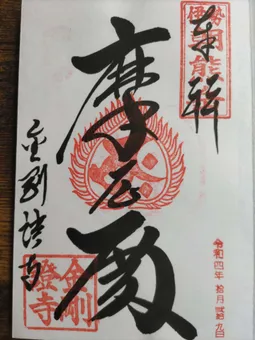 伊勢
朝熊
奉拝
摩尼殿
金剛證寺
金剛
證寺
令和四年拾月九日